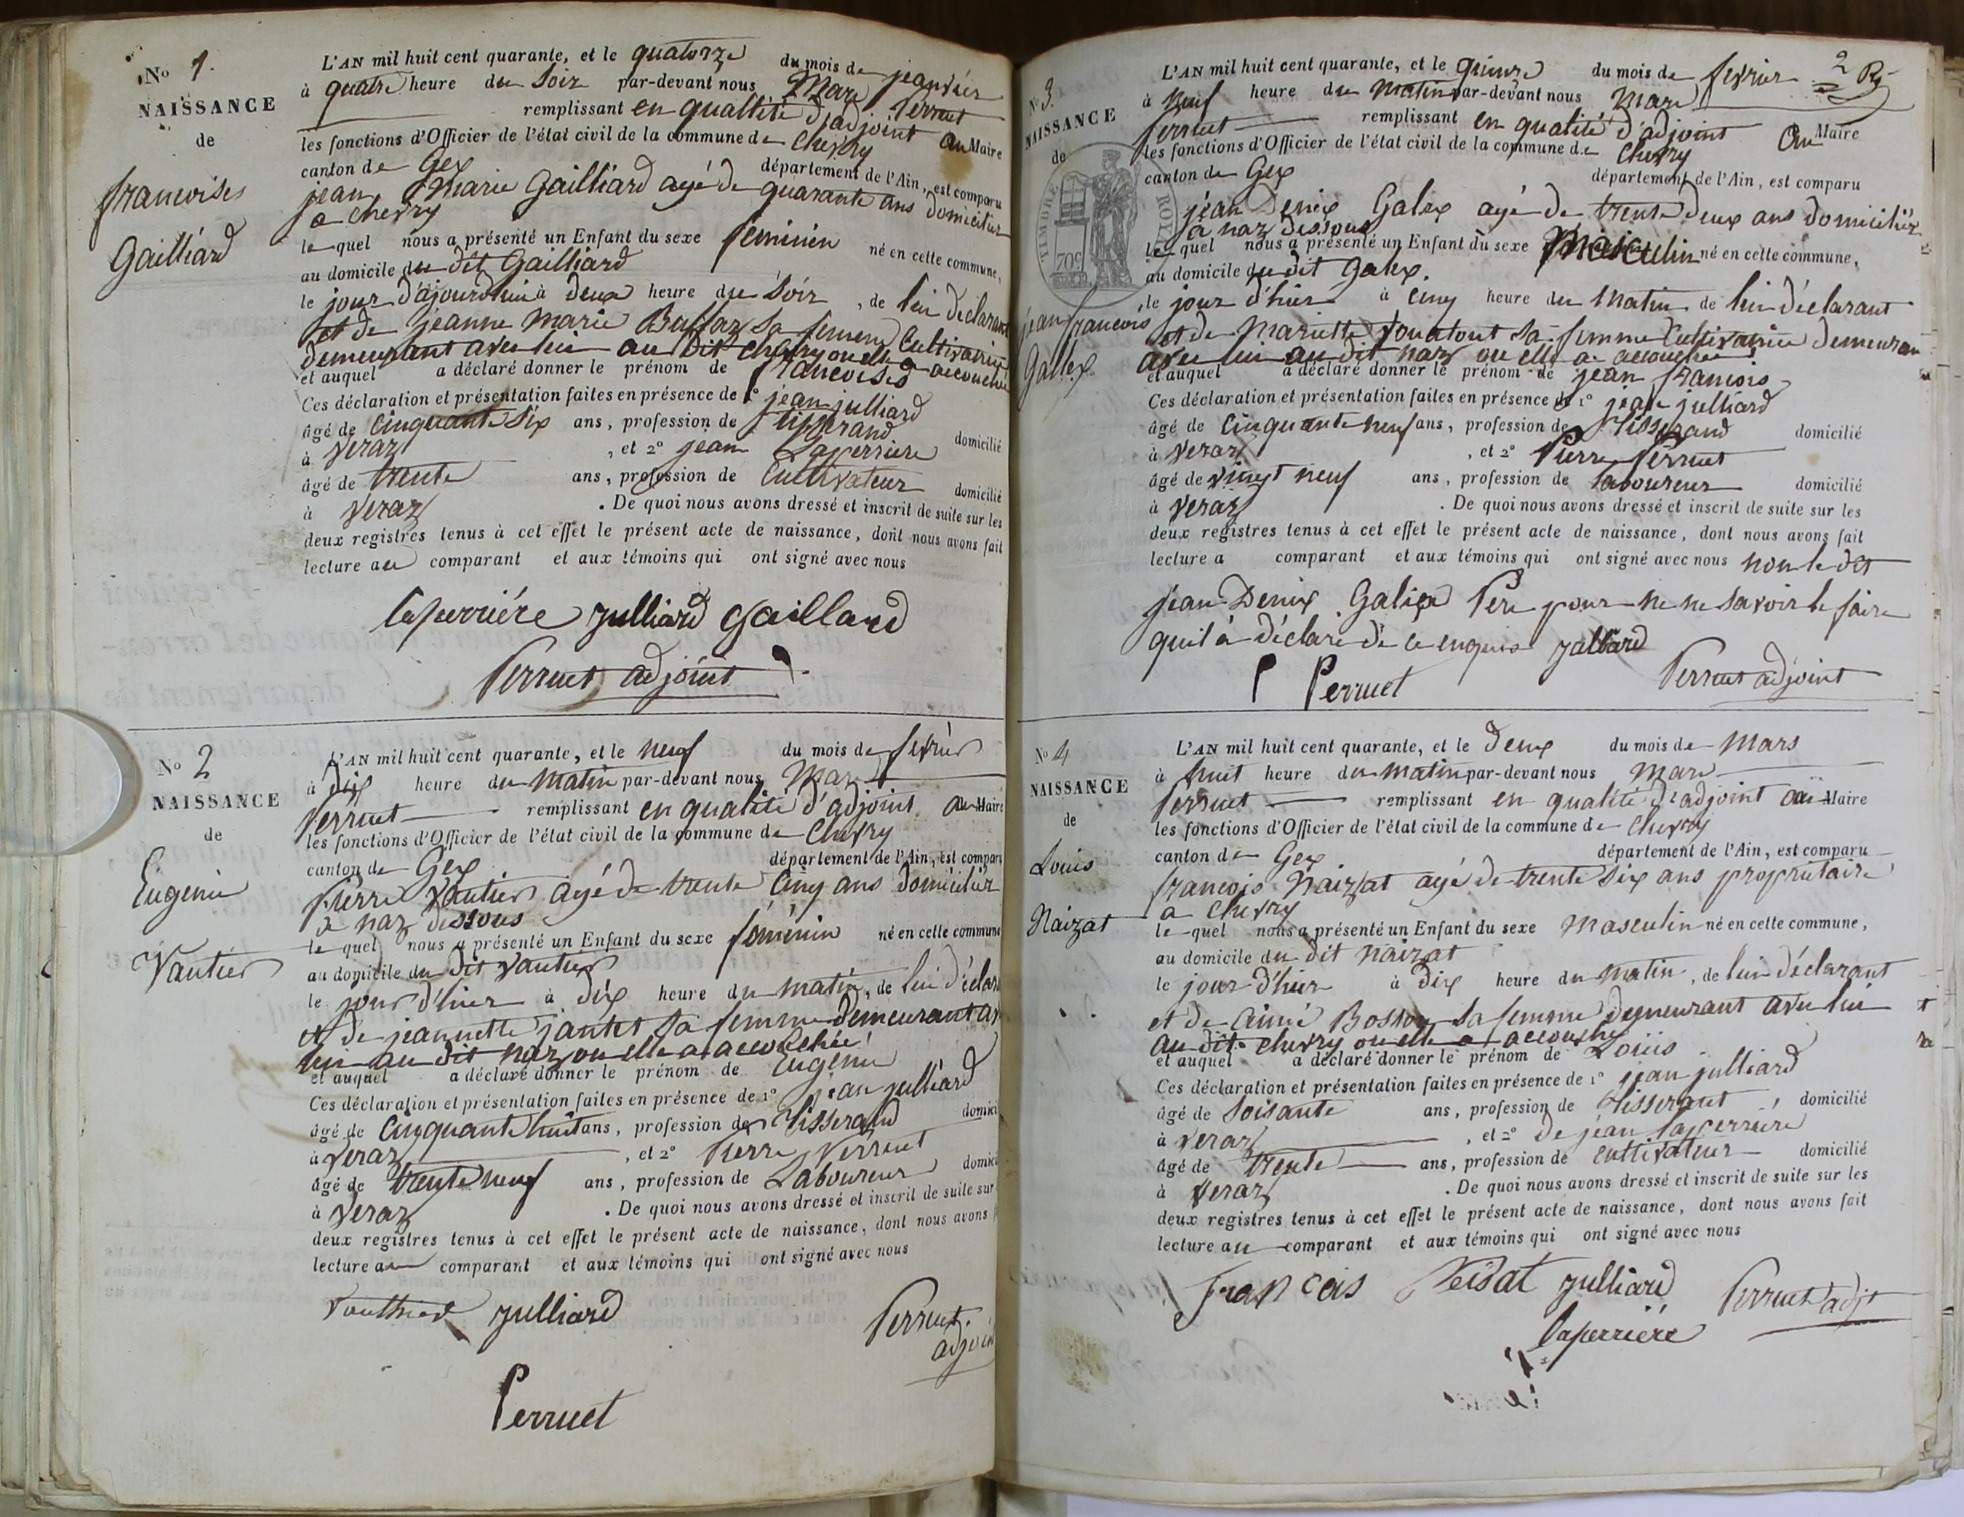 No 1.
NAISSANCE
de
francoises
Gailliard
L'AN mil huit cent quarante, et le quatorze du mois de jeanvier
à quatre heure du Soir par-devant nous Marc Perruet
remplissant en qualtité d'adjoint au Maire
les fonctions d'Officier de l'état civil de la commune de Chevry
canton de Gex département de l'Ain, est comparu
jean Marie Gailliard agé de quarante ans domicilier
a chevry
le quel nous a présenté un Enfant du sexe féminien né en cette commune,
au domicile du dit Gailliard
le jour d'ajourdhuin à deux heure du Soir, de lui déclarant
et de jeanne Marie sa femme Cultivatrice
demeurant avec lui au dit chevry ou elle a accouchée
et auquel a déclaré donner le prénom de francoises
Ces déclaration et présentation faites en présence de 1° jean julliard
âgé de Cinquante Six ans, profession de tisserand domicilié
à Veraz, et 2° jean Laperriere
âgé de trente ans, profession de Cultivateur domicilié
à Veraz. De quoi nous avons dressé et inscrit de suite sur les
deux registres tenus à cet effet le présent acte de naissance, dont nous avons fait
lecture au comparant et aux témoins qui ont signé avec nous
laperriére julliard Gaillard
Perruet adjoint
No 2
NAISSANCE
de
Eugenie
Vautier
L'AN mil huit cent quarante, et le neuf du mois de fevrier
à dix heure du matin par-devant nous Marc
Perruet remplissant en qualité d'adjoint au Maire
les fonctions d'Officier de l'état civil de la commune de Chevry
canton de Gex département de l'Ain, est comparu
Pierre Vautier agé de trente Cinq ans domicilier
à naz dessous
le quel nous a présenté un Enfant du sexe féminin né en cette commune
au domicile du dit Vautier
le jour d'hier à dix heure du matin, de lui déclar
et de jeannette jantet sa femme demeurant av
lui au dit naz ou elle a accouchée
et auquel a déclaré donner le prénom de Eugenie
Ces déclaration et présentation faites en présence de 1° jean julliard
âgé de Cinquante huit ans, profession de tisserand domici
à Veraz, et 2° Pierre Perruet
âgé de trente neuf ans, profession de Laboureur domici
à Veraz. De quoi nous avons dressé et inscrit de suite sur
deux registres tenus à cet effet le présent acte de naissance, dont nous avons f
lecture au comparant et aux témoins qui ont signé avec nous
julliard Perruet
adjoin
Perruet
2
No 3.
NAISSANCE
de
TIMBRE ROYAL
70c
jean francois
Gallex
L'AN mil huit cent quarante, et le quinze du mois de fevrier
à neuf heure du matin par-devant nous Marc
Perruet remplissant en qualité d'adjoint au Maire
les fonctions d'Officier de l'état civil de la commune de Chevry
canton de Gex département de l'Ain, est comparu
jean Denix Galex agé de trente deux ans domicilier
a naz dessous
le quel nous a présenté un Enfant du sexe Masculin né en cette commune,
au domicile du dit Galex.
le jour d'hier à cinq heure du Matin de lui déclarant
et de Mariette sa femme Cultivatrice demeuran
avec lui au dit naz ou elle a accouchée
et auquel a déclaré donner le prénom de jean francois
Ces déclaration et présentation faites en présence de 1° jean julliard
âgé de Cinquante neuf ans, profession de tisserand domicilié
à Veraz, et 2° Pierre Perruet
âgé de vingt neuf ans, profession de laboureur domicilié
à Veraz. De quoi nous avons dressé et inscrit de suite sur les
deux registres tenus à cet effet le présent acte de naissance, dont nous avons fait
lecture a comparant et aux témoins qui ont signé avec nous non le dit
jean Denix Galex Pere pour ne ne savoir le faire
quil à déclaré de ce enquis julliard
Perruet Perruet adjoint
No 4
NAISSANCE
de
Louis
Naizat
L'AN mil huit cent quarante, et le deux du mois de Mars
à huit heure du matin par-devant nous Marc
Perruet remplissant en qualité d'adjoint au Maire
les fonctions d'Officier de l'état civil de la commune de Chevry
canton de Gex département de l'Ain, est comparu
francois Naizat agé de trente six ans propriétaire
a chevry
le quel nous a présenté un Enfant du sexe Masculin né en cette commune,
au domicile du dit naizat
le jour d'hier à dix heure du matin, de lui déclarant
et de aimé Bosson sa femme demeurant avec lui
au dit chevry ou elle a accouchy
et auquel a déclaré donner le prénom de Louis
Ces déclaration et présentation faites en présence de 1° jean julliard
âgé de soisante ans, profession de tisserant, domicilié
à Veraz, et 2° de jean laperriére
âgé de trente ans, profession de cultivateur domicilié
à Veraz. De quoi nous avons dressé et inscrit de suite sur les
deux registres tenus à cet effet le présent acte de naissance, dont nous avons fait
lecture au comparant et aux témoins qui ont signé avec nous
François Neisat julliard Perruet adjt
laperriere